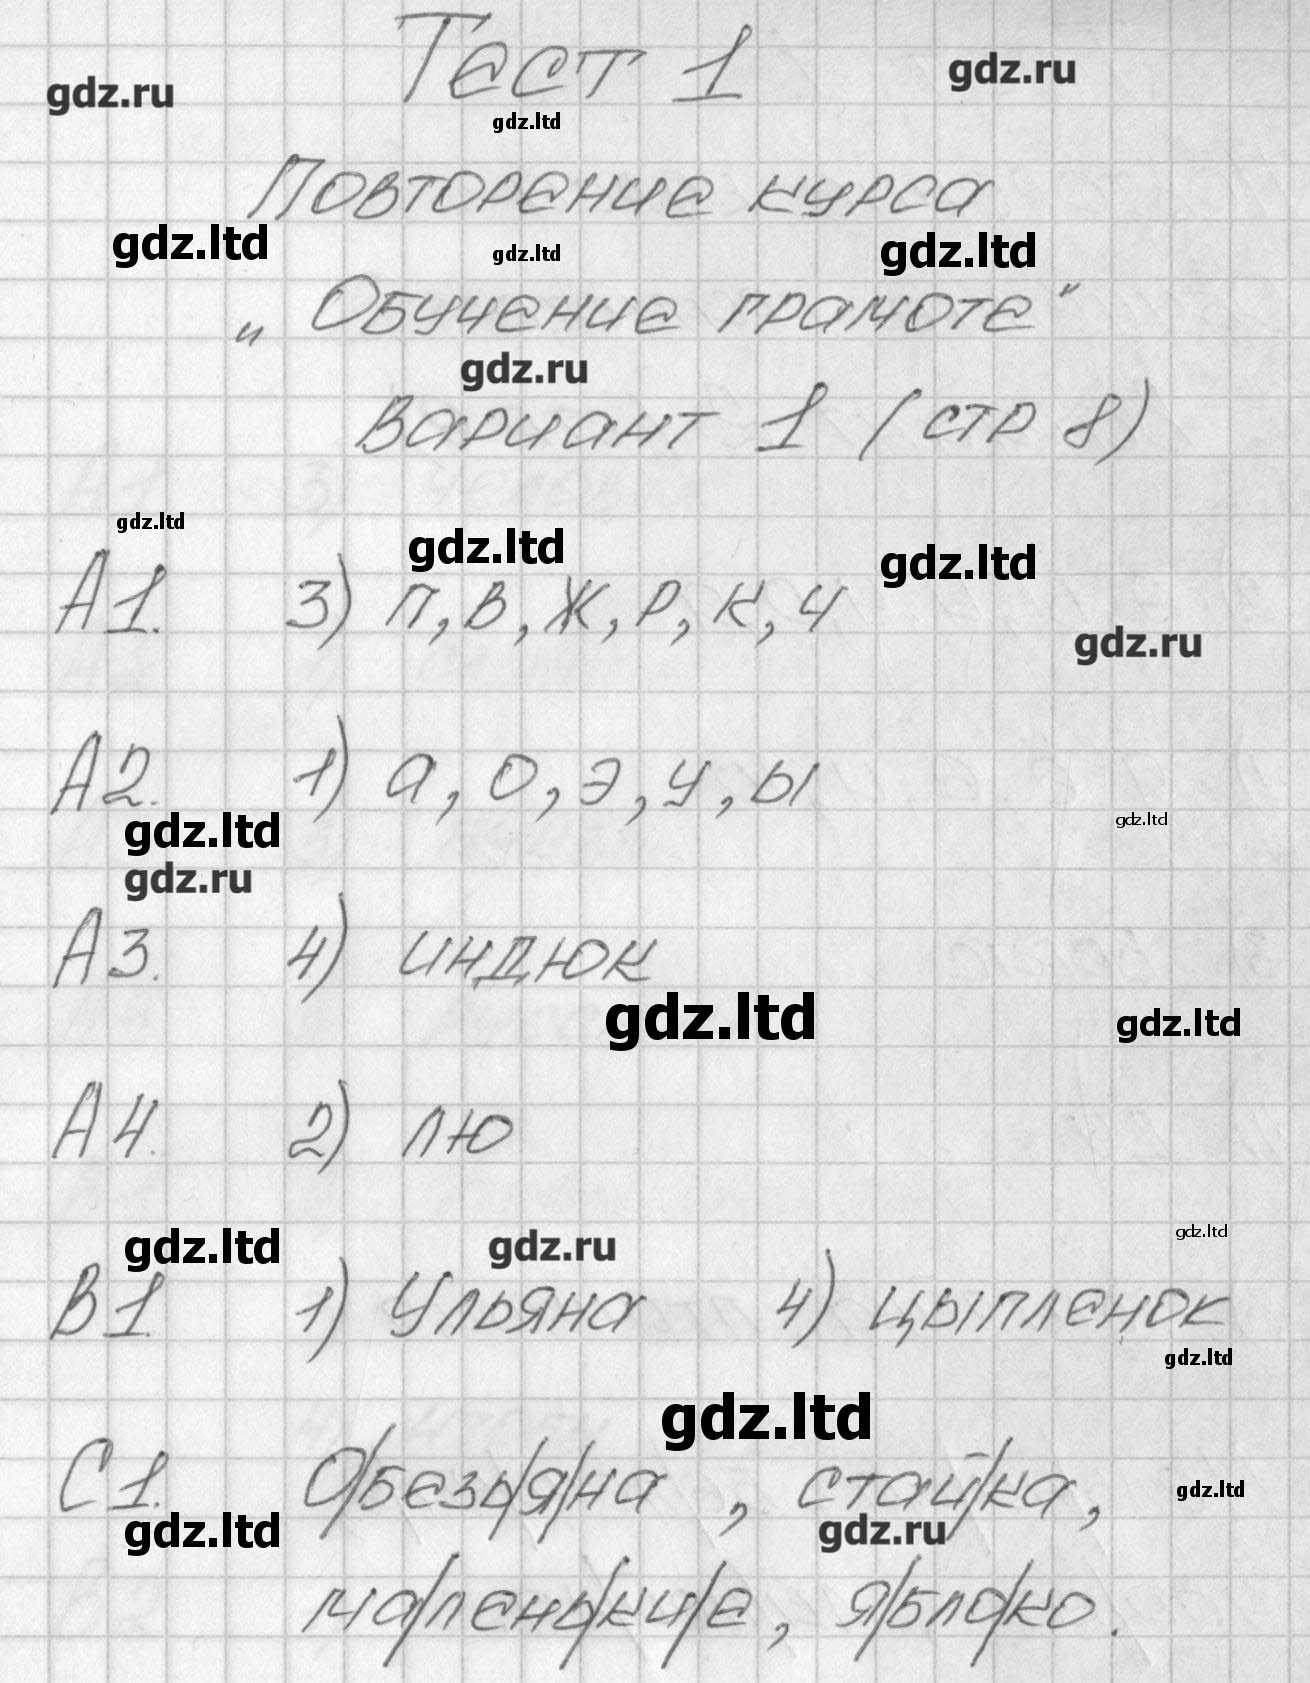 Тест 1
gdz.ru
gdz.ru
gdz.ltd
Повторение курса
gdz.ltd
gdz.ltd
gdz.ltd
„Обучение грамоте"
gdz.ru
Вариант 1 (стр 8)
gdz.ltd
gdz.ltd
gdz.ltd
А1. 3) п, в, ж, р, к, ч
gdz.ru
А2. 1) а, о, э, у, ы
gdz.ltd
gdz.ltd
gdz.ru
А3. 4) индюк
gdz.ltd
gdz.ltd
А4. 2) лю
gdz.ltd
gdz.ru
gdz.ltd
В1 1) Ульяна 4) цыпленок
gdz.ltd
gdz.ltd
С1. О/безь/я/на, стай/ка,
gdz.ltd
gdz.ltd
gdz.ru
ма/лень/ки/е, я/бло/ко.